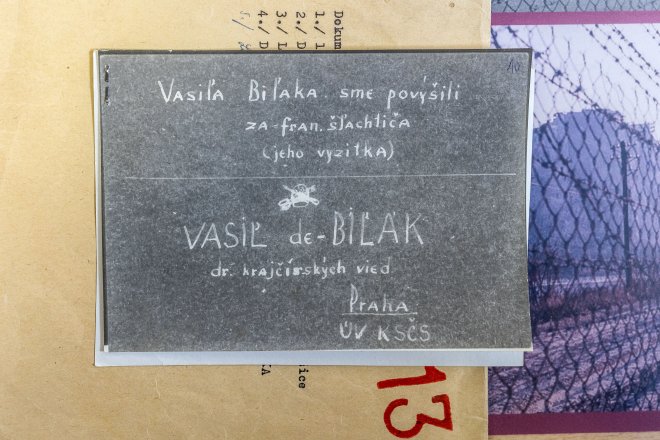 Vasiľa Biľaka sme povýšili
za fran. šľachtiča
(jeho vyzitka)
VASIĽ de-BIĽAK
dr. krajčírskych vied
Praha
ÚV KSČS
Dokum
1./ 1
2./ D
3./ L
4./ D
5./
13